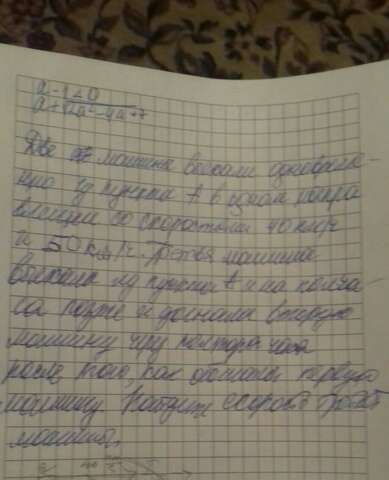 a - 1 < 0
Две машины выехали одновреме-
нно из пункта А в одном напра
влении со скоростями 40 км/ч
и 50 км/ч. Третья машина
выехала из пункта А на полча-
са позже и догнала вторую
машину через полтора часа
после того, как обогнала первую
машину. Найдите скорость третьей
машины.